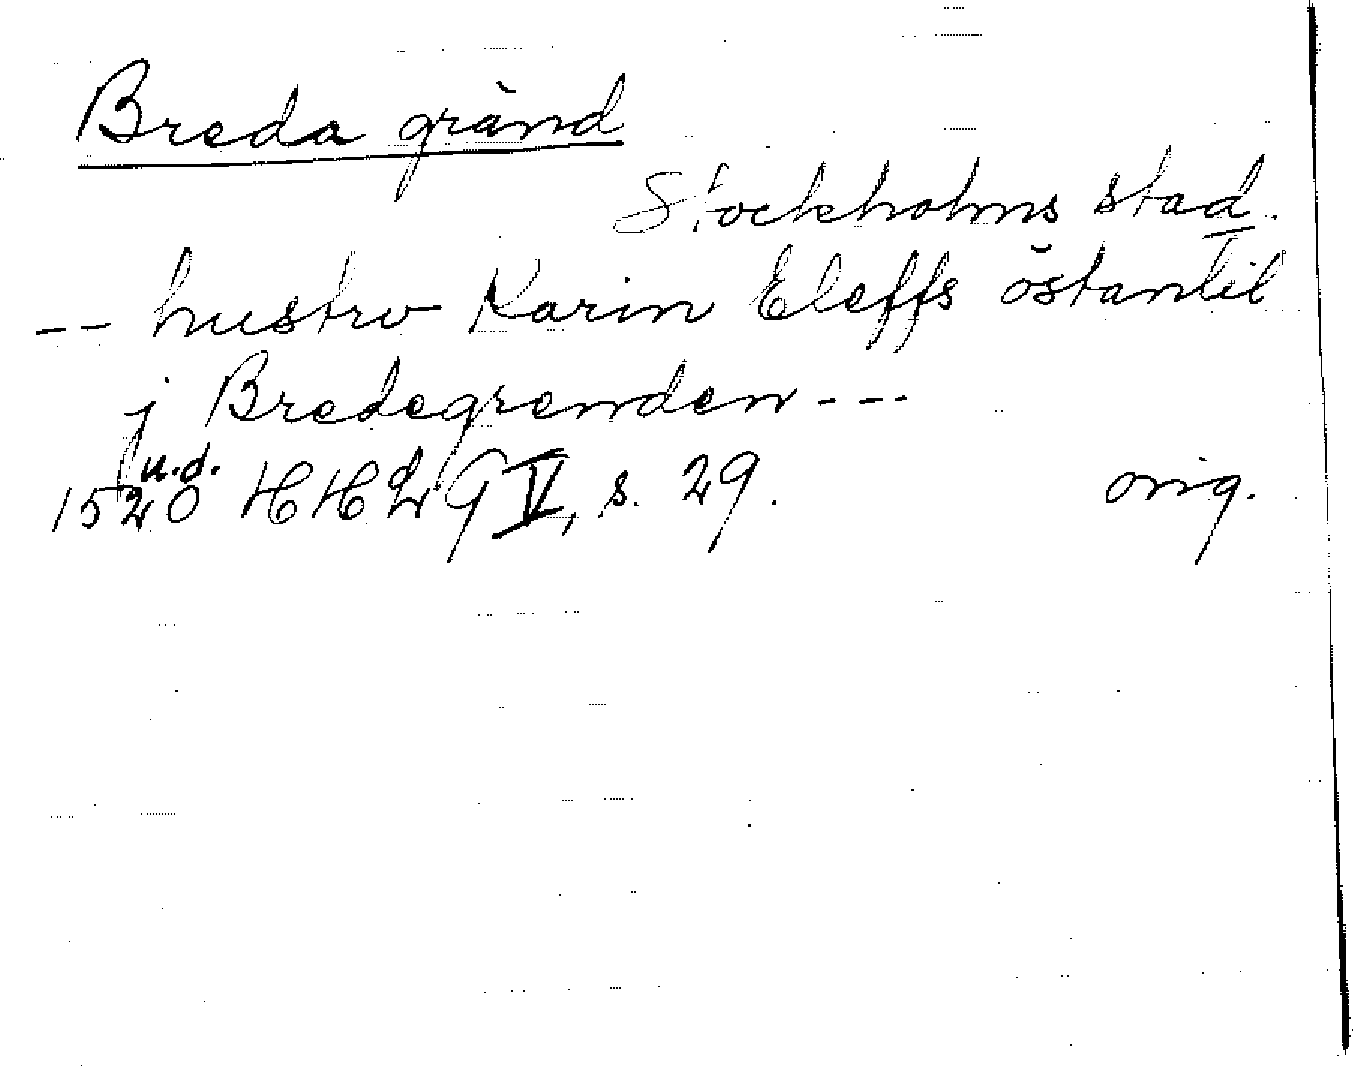 Breda gränd
Stockholms stad.
-- hustrv Karin Eleffs östantil
j Bredegrenden ---
u.d.
1520 HH 29 V, s. 29.
orig.